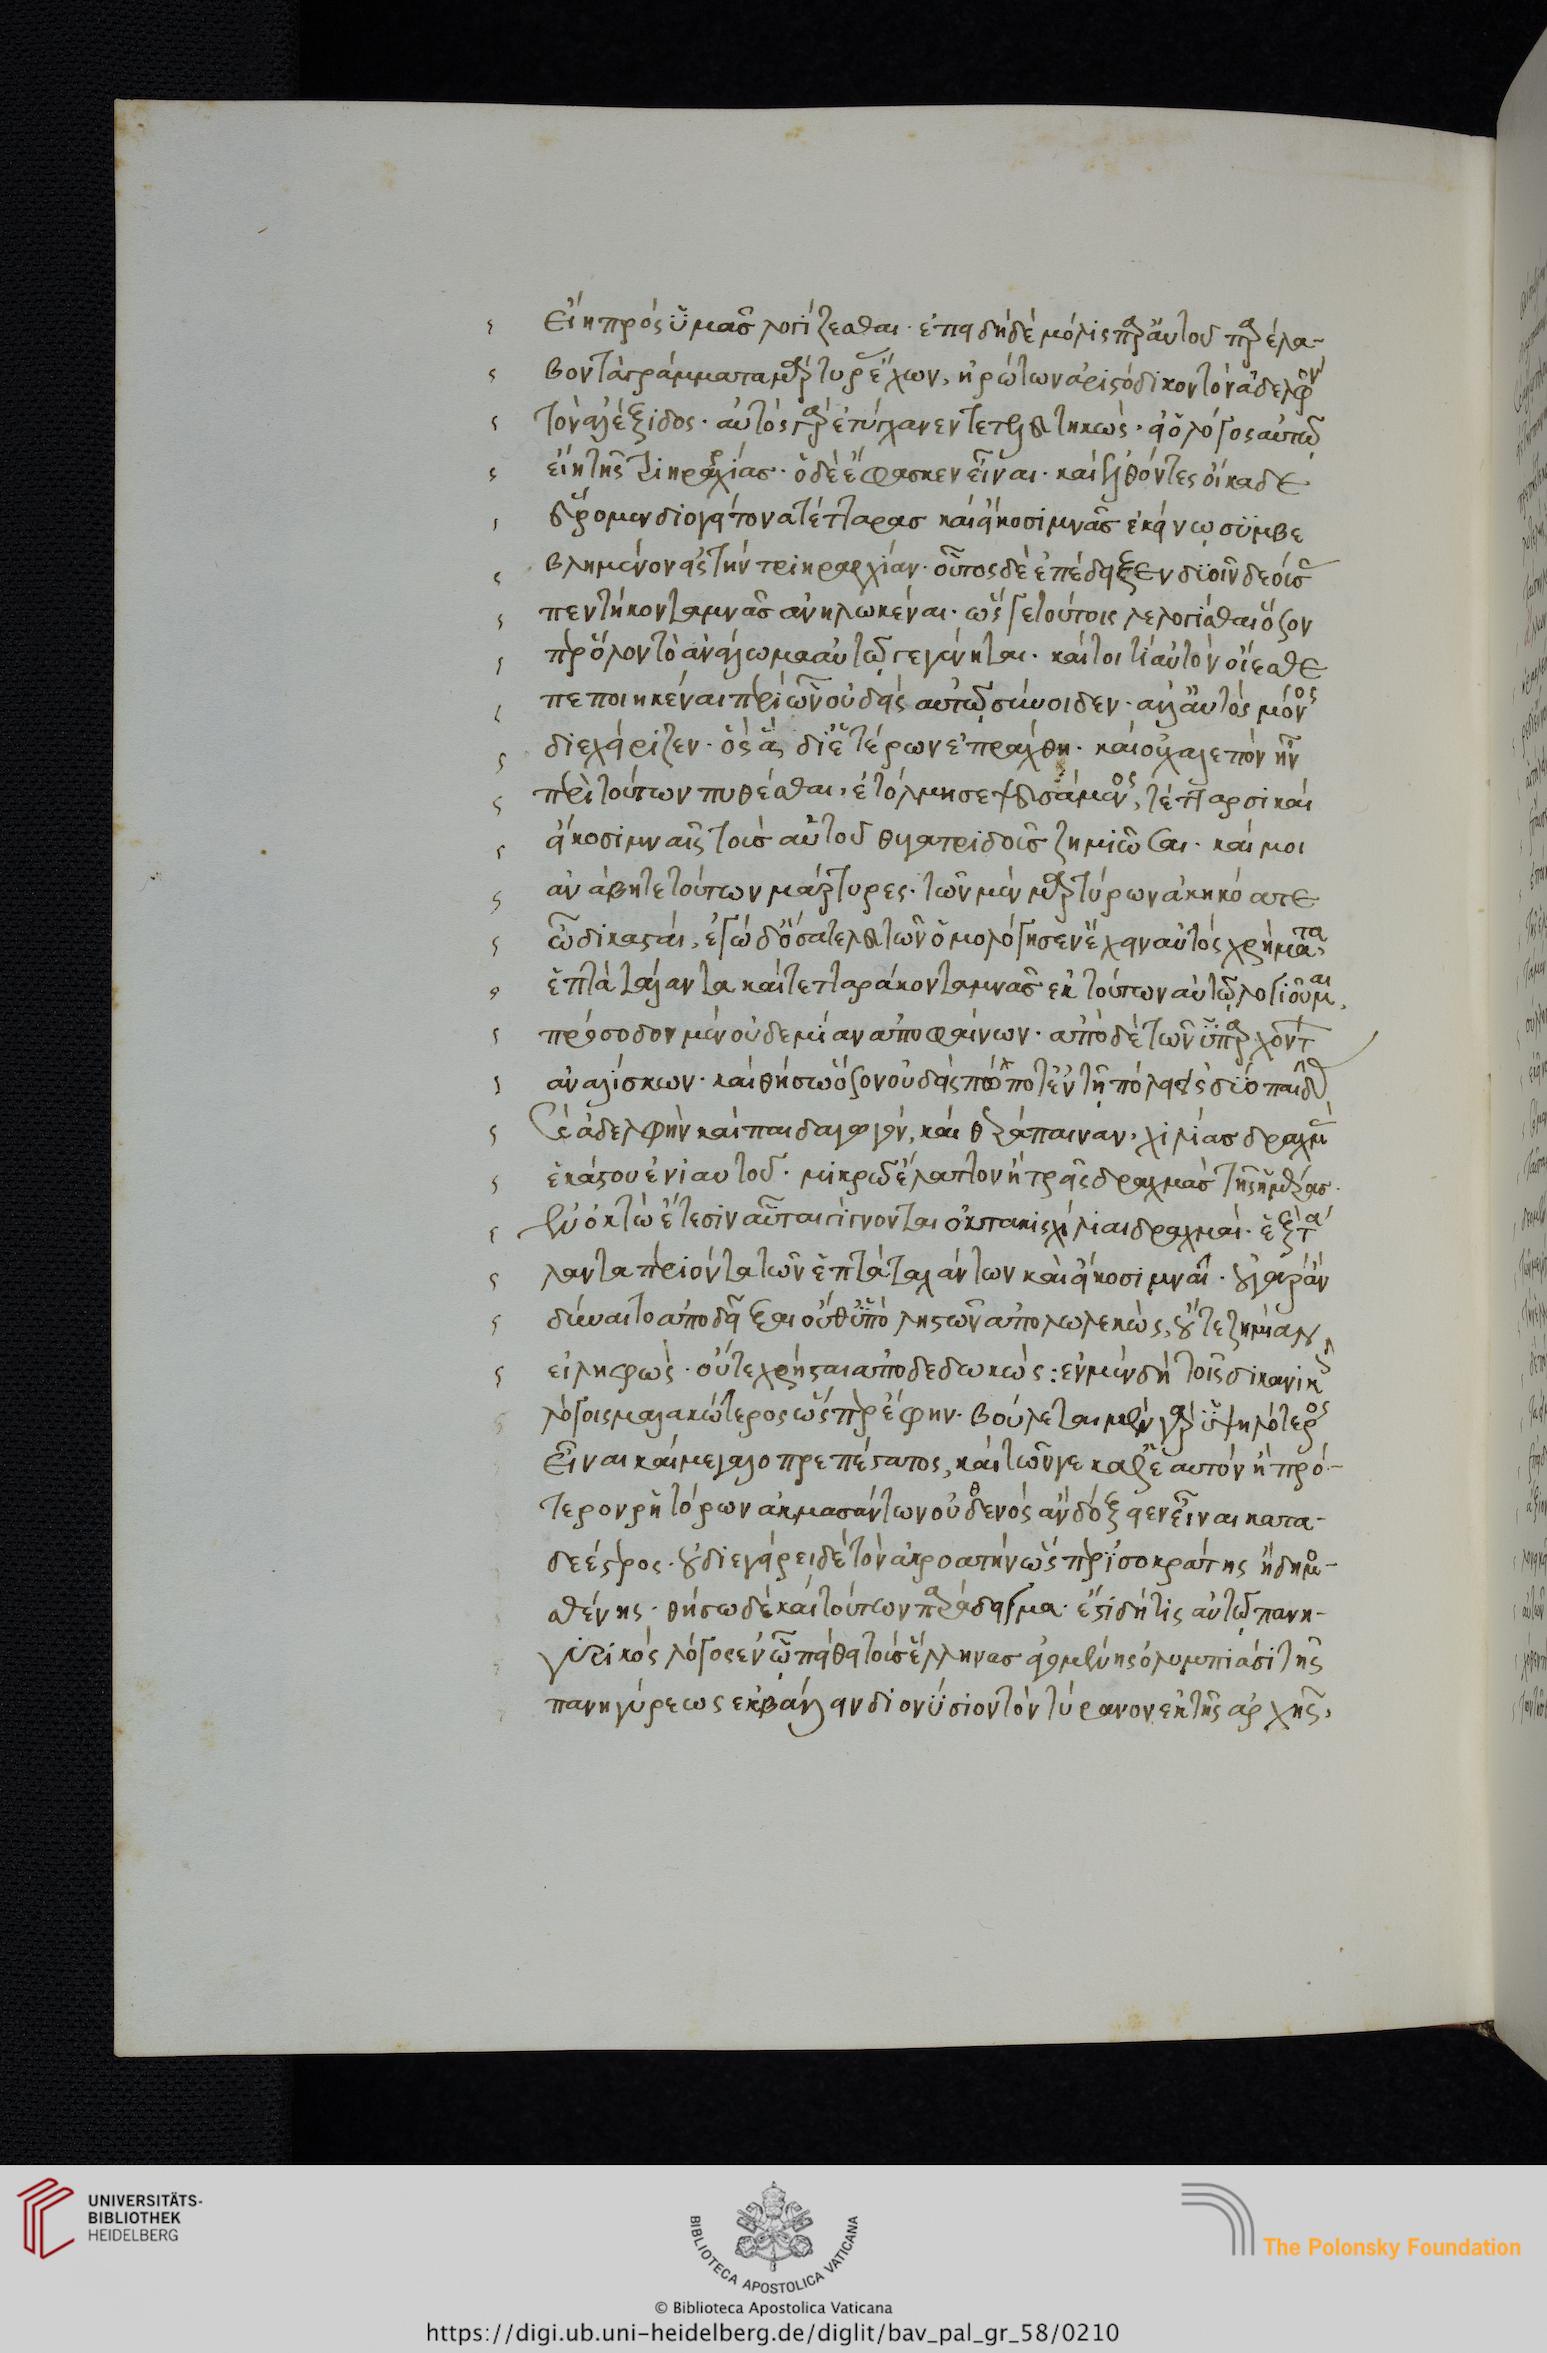 εἴη πρὸς ὑμᾶς λογίζεσθαι· ἐπειδὴ δὲ μόλις παρ' αὐτοῦ παρέλα-
βον τὰ γράμματα μάρτυρας ἔχων, ἠρώτων ἀριστόδικον τὸν ἀδελφὸν
τὸν ἀλέξιδος· αὐτὸς γὰρ ἐτύγχανεν τετελευτηκώς· εἰ ὁ λόγος αὐτῷ
εἴη τῆς τριηραρχίας· ὁ δὲ ἔφασκεν εἶναι· καὶ ἐλθόντες οἴκαδε
εὕρομεν διογείτονα τέτταρας καὶ εἴκοσι μνᾶς ἐκείνῳ συμβε
βλημένον εἰς τὴν τριηραρχίαν· οὗτος δὲ ἐπέδειξεν δυοῖν δεούσας
πεντήκοντα μνᾶς ἀνηλωκέναι· ὥστε τούτοις λελογίσθαι ὅσον
περ ὅλον τὸ ἀνάλωμα αὐτῷ γεγένηται· καίτοι τί αὐτὸν οἴεσθε
πεποιηκέναι περὶ ὧν οὐδεὶς αὐτῷ σύνοιδεν· ἀλλ' αὐτὸς μόνος
διεχείριζεν· ὃς ἃ δι' ἑτέρων ἐπράχθη· καὶ οὐ χαλεπὸν ἦν
περὶ τούτων πυθέσθαι, ἐτόλμησε ψευσάμενος, τέτταρσι καὶ
εἴκοσι μναῖς τοὺς αὑτοῦ θυγατριδοῦς ζημιῶσαι· καί μοι
ἀνάβητε τούτων μάρτυρες· τῶν μὲν μαρτύρων ἀκηκόατε
ὦ δικασταί, ἐγὼ δ' ὅσα τελευτῶν ὁμολόγησεν ἔχειν αὐτὸς χρήματα,
ἑπτὰ τάλαντα καὶ τετταράκοντα μνᾶς ἐκ τούτων αὐτῷ λογιοῦμαι,
πρόσοδον μὲν οὐδεμίαν ἀποφαίνων· ἀπὸ δὲ τῶν ὑπαρχόντων
ἀναλίσκων· καὶ θήσω ὅσον οὐδεὶς πώποτ' ἐν τῇ πόλει εἰς δύο παῖδας
καὶ ἀδελφὴν καὶ παιδαγωγόν, καὶ θεράπαιναν, χιλίας δραχμὰς
ἑκάστου ἐνιαυτοῦ· μικρῷ ἔλαττον ἢ τρεῖς δραχμὰς τῆς ἡμέρας·
ἐν ὀκτὼ ἔτεσιν αὗται γίγνονται ὀκτακισχίλιαι δραχμαί· ἓξ τά
λαντα περιόντα τῶν ἑπτὰ ταλάντων καὶ εἴκοσι μναῖ· οὐ γὰρ ἂν
δύναιτο ἀποδεῖξαι οὔθ' ὑπὸ λῃστῶν ἀπολωλεκώς, οὔτε ζημίαν
εἰληφώς· οὔτε χρήσταις ἀποδεδωκώς: ἐν μὲν δὴ τοῖς δικανικοῖς
λόγοις μαλακώτερος ὥσπερ ἔφην· βούλεται μὲν γὰρ ὑψηλότερος
εἶναι καὶ μεγαλοπρεπέστατος, καὶ τῶν γε καθ' ἑαυτὸν ἢ πρό-
τερον ῥητόρων ἀκμασάντων οὐδενὸς ἂν δόξειεν εἶναι κατα-
δεέστερος· οὐ διεγείρει δὲ τὸν ἀκροατὴν ὥσπερ ἰσοκράτης ἢ δημο-
σθένης· θήσω δὲ καὶ τούτων παράδειγμα· ἔστι δή τις αὐτῷ πανη-
γυρικὸς λόγος ἐν ᾧ πείθει τοὺς ἕλληνας ἀγομένης ὀλυμπιάσι τῆς
πανηγύρεως ἐκβάλλειν διονύσιον τὸν τύρανον ἐκ τῆς ἀρχῆς,
UNIVERSITÄTS-
BIBLIOTHEK
HEIDELBERG
BIBLIOTECA APOSTOLICA VATICANA
The Polonsky Foundation
© Biblioteca Apostolica Vaticana
https://digi.ub.uni-heidelberg.de/diglit/bav_pal_gr_58/0210